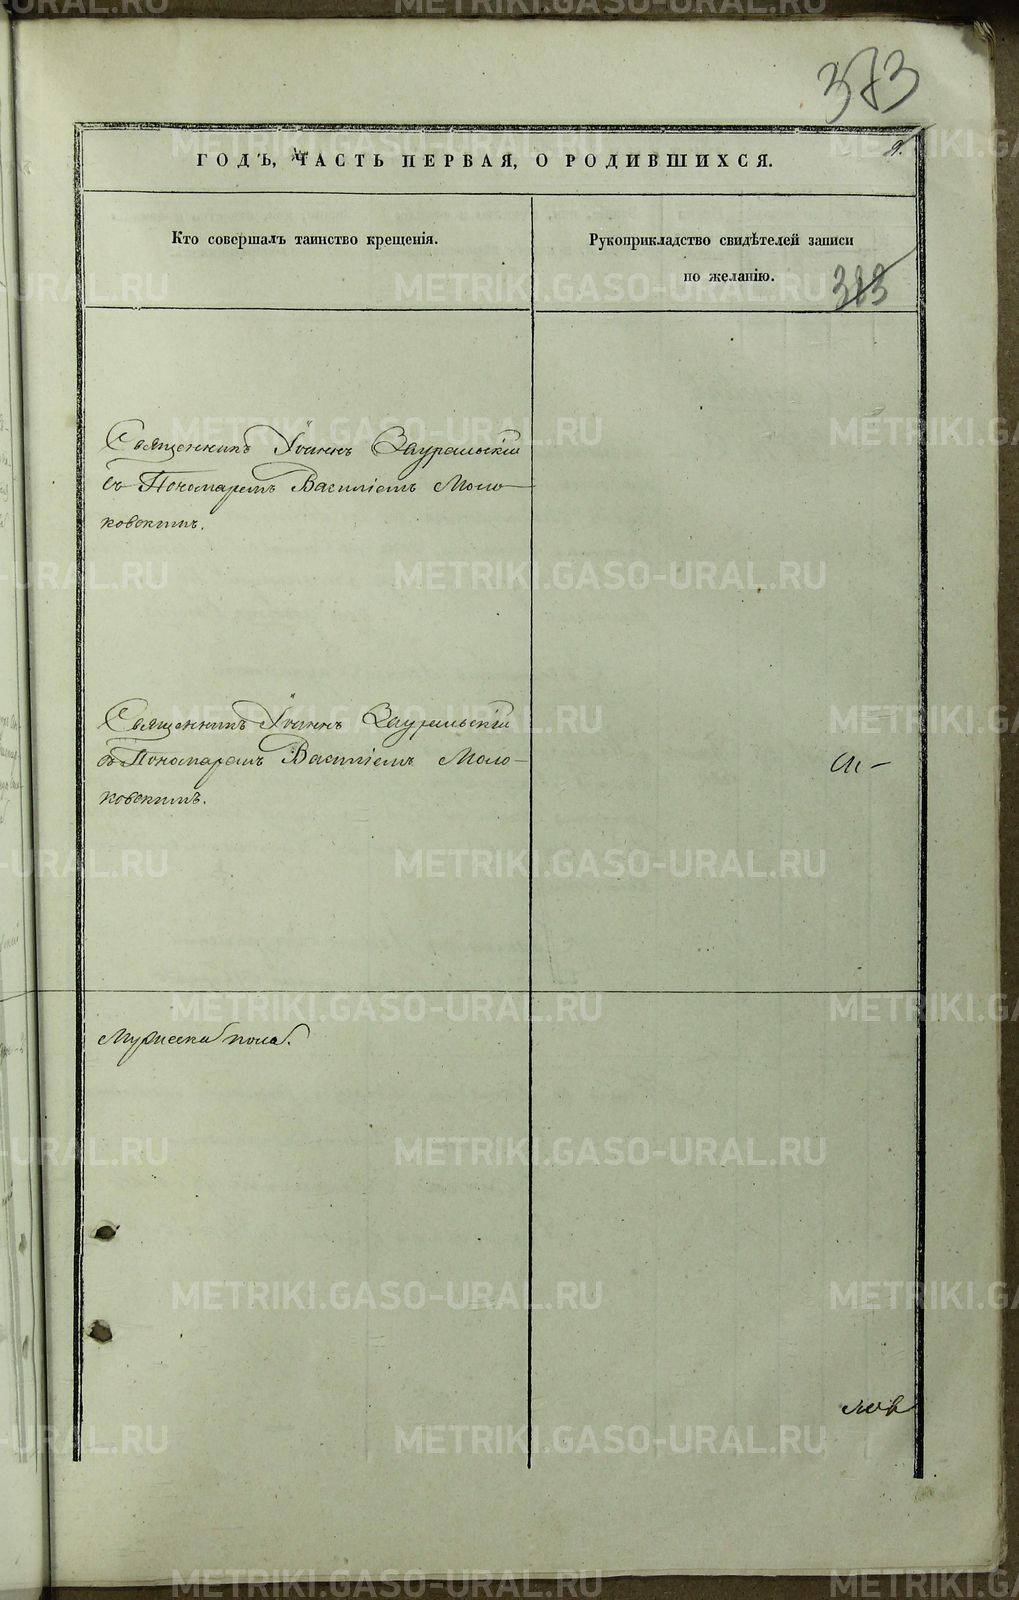 373
ГОДЪ, ЧАСТЬ ПЕРВАЯ, О РОДИВШИХСЯ.
Кто совершалъ таинство крещенія.
Рукоприкладство свидѣтелей записи
по желанію.
383
Священникъ Іоаннъ Зауральскій
съ Пономаремъ Василіемъ Моло-
ковскимъ.
Священникъ Іоаннъ Зауральскій
съ Пономаремъ Василіемъ Моло-
ковскимъ.
Мужеска пола.
METRIKI.GASO-URAL.RU